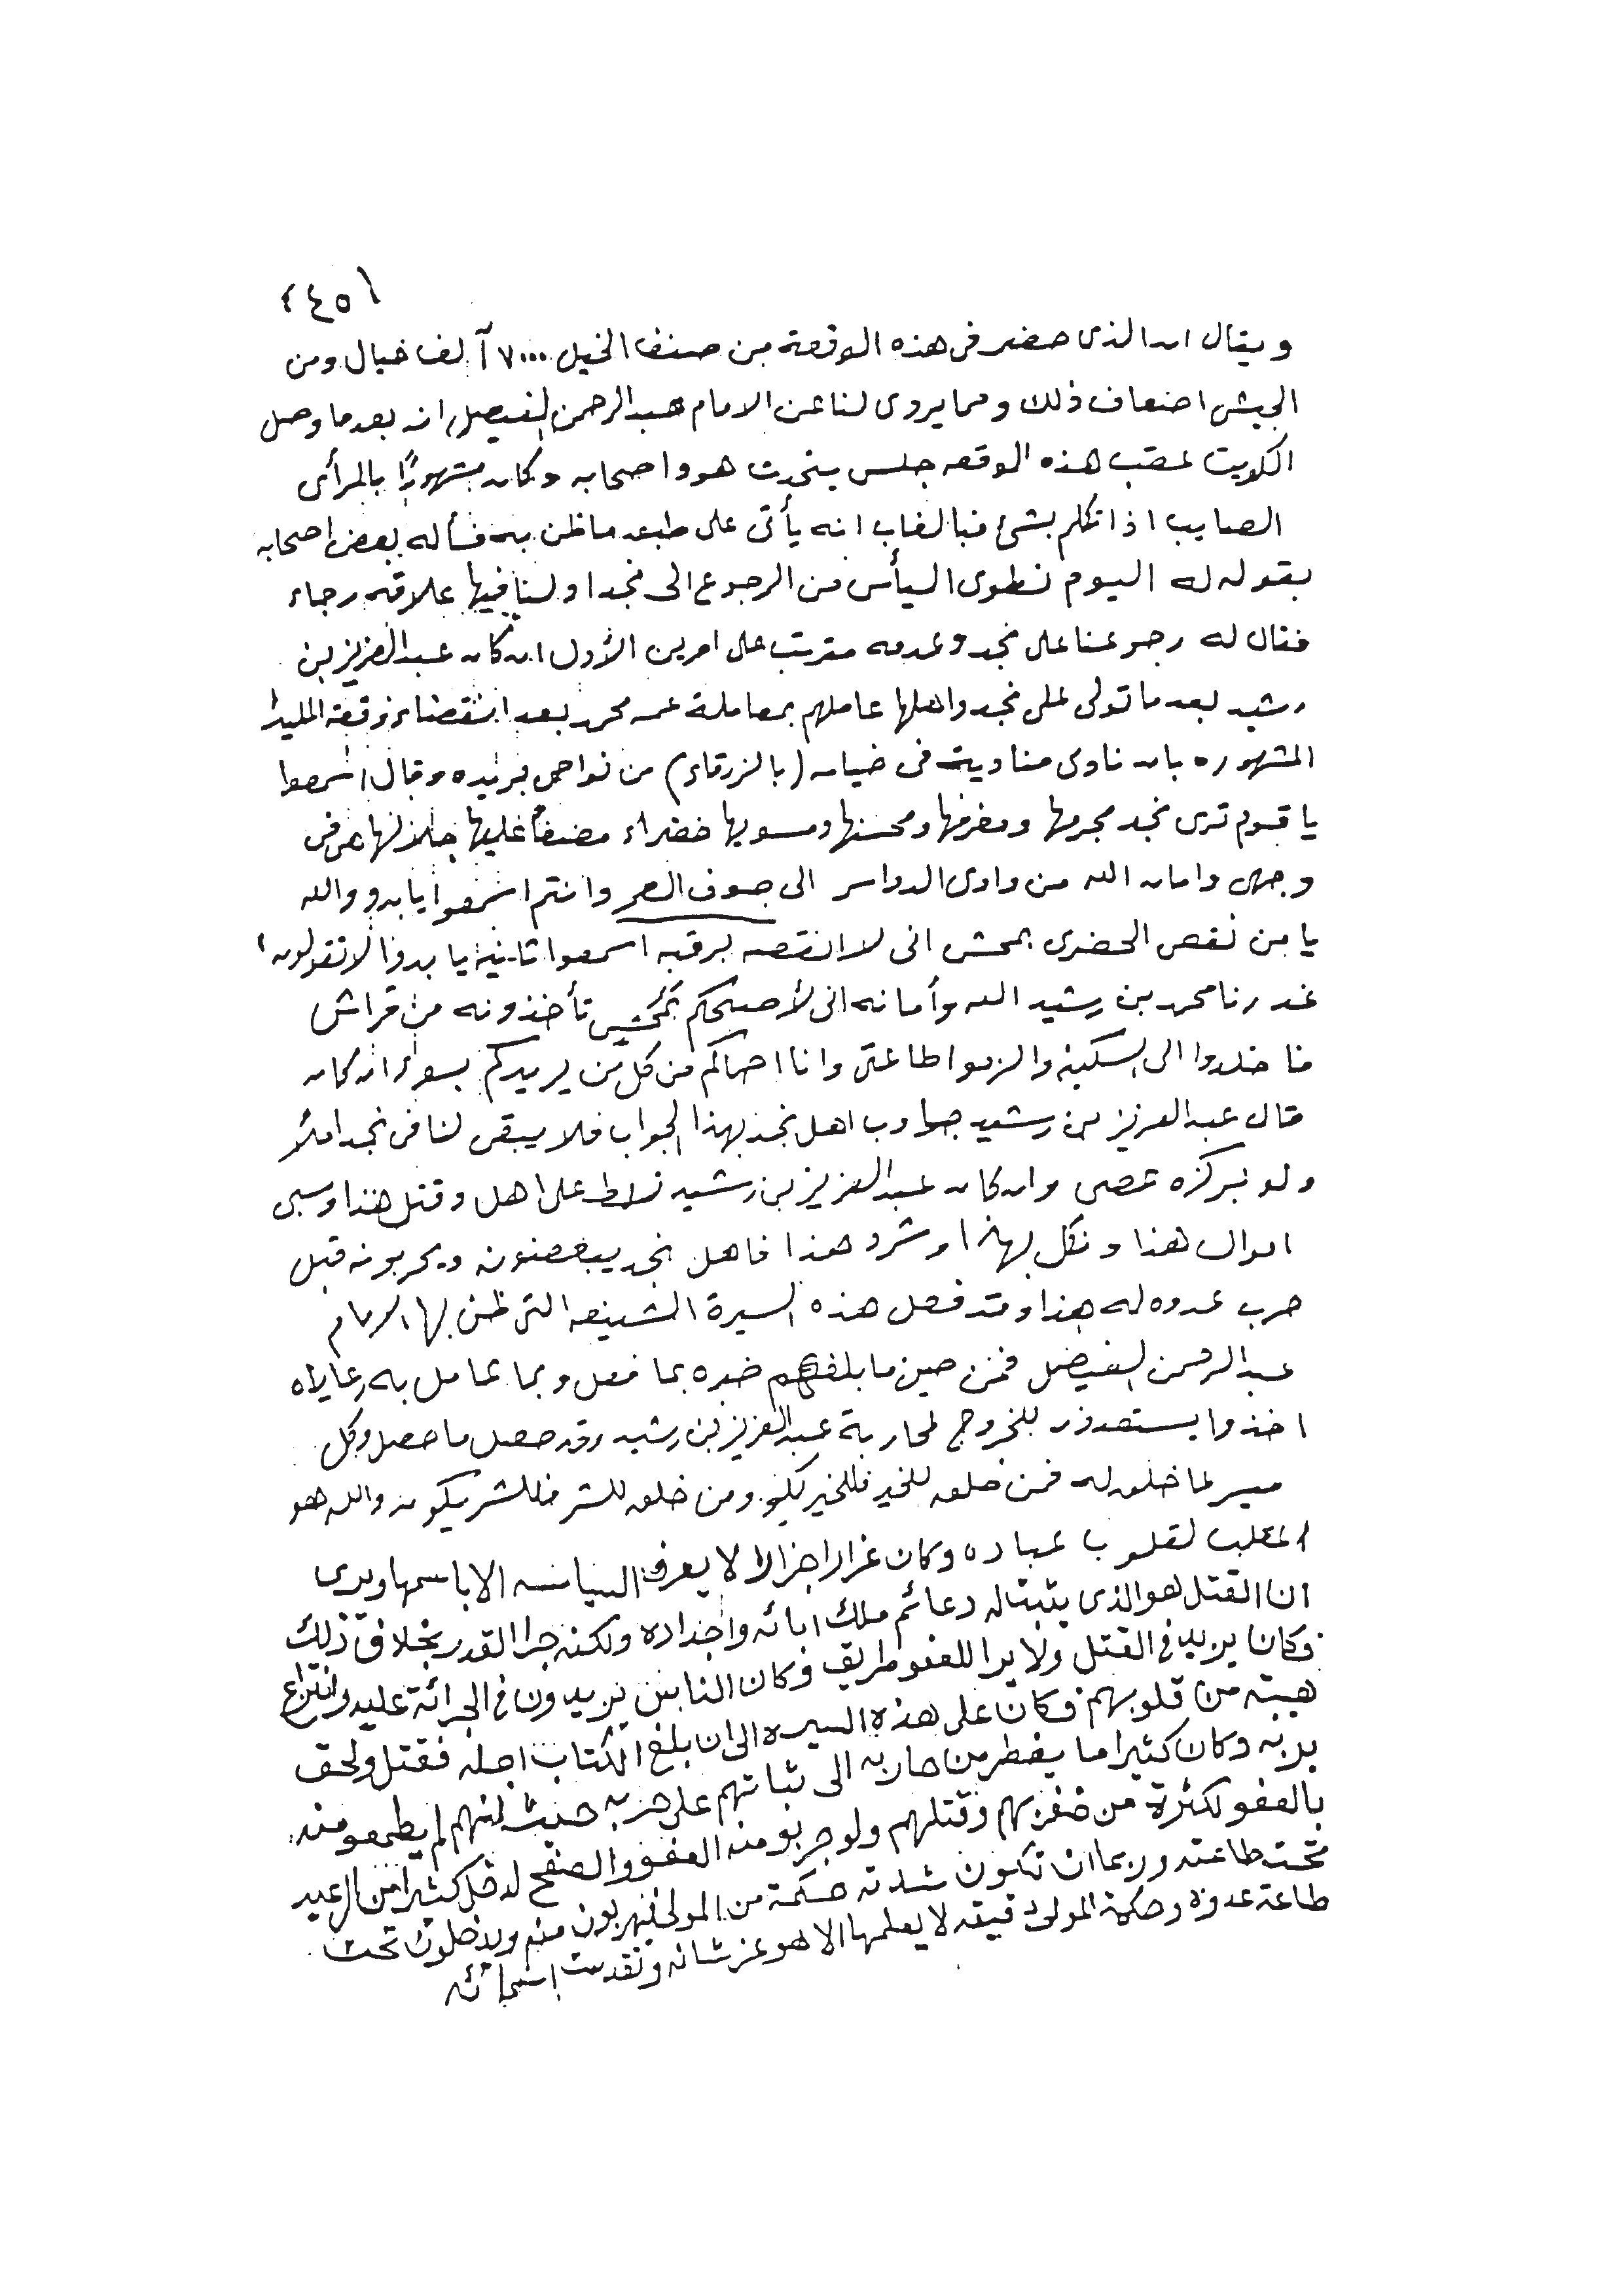 (٤٥)
ويقال ان الذى حضر فى هذه الوقعة من صنف الخيل ٧٠٠٠ آلف خيال ومن
الجيش اضعاف ذلك ومما يروى لنا عن الامام عبد الرحمن الفيصل انه بعد ما وصل
الكويت عقب هذه الوقعه جلس يتحدث هو واصحابه وكان مشهورًا بالرأى
الصايب اذا تكلم بشئ فبالغاب انه يأتى على طبق ما ظن به فسأله بعض اصحابه
بقوله له اليوم نطوى اليأس من الرجوع الى نجد او لنا فيها علاقه رجاء
فقال له رجوعنا على نجد وعدمه مترتب على امرين الأول ان كان عبد العزيز بن
رشيد بعد ما تولى على نجد واهلها عاملهم بمعاملة عمه محمد بعد انقضاء وقعة المليدا
المشهوره بان نادى مناديه فى خيامه (بالزرقاء) من نواحى بريده وقال اسمعوا
يا قوم ترى نجد مجرمها ومغرمها ومحسنها ومسويها خضراء مضفأ عليها جلالها هى فى
وجهى وامان الله من وادى الدواسر الى جوف العمر وانتم اسمعوا يا بدو والله
يا من نقص الحضرى بمحش انى لا انقصه برقبه اسمعوا ثانية يا بدو لا تقولون
غدرنا محمد بن رشيد الله وأمانه انى لأصبحكم بمحش تأخذونه من قراش
فاخلدوا الى السكينة والزموا طاعتى وانا احماكم من كل من يريدكم بسوء ان كان
قال عبد العزيز بن رشيد جواب اهل نجد بهذا الجواب فلا يبقى لنا فى نجد املًا
ولو بركزه عصى وان كان عبد العزيز بن رشيد تسلط على اهل وقتل هذا وسبى
اموال هذا ونكل بهذا وشرد هذا فاهل نجد يبغضونه ويحربونه قبل
حرب عدوه له هذا وقد فعل هذه السيرة الشنيعه التى ظن بها الامام
عبد الرحمن الفيصل فمن حين ما بلغهم خبره بما فعل وبما عامل به رعاياه
اخذوا يستعدون للخروج لمحاربة عبد العزيز بن رشيد وقد حصل ما حصل وكل
ميسر لما خلق له فمن خلقه للخير فللخير يكون ومن خلقه للشر فللشر يكون والله هو
المقلب لقلوب عباده وكان غرارا جزالا لا يعرف السياسه الا باسمها ويرى
ان القتل هو الذى يثبت له دعائم ملك ابائه واجداده ولكنه جرا القدر بخلاف ذلك
فكان يزيد فى القتل ولا يرا للعفو طريق فكان الناس يزيدون فى الجرائة عليه وانتزاع
هيبته من قلوبهم فكان على هذه السيره الى ان بلغ الكتاب اجله فقتل ولحق
بربه وكان كثيرا ما يضطر من حاربه الى ثباتهم على حربه حيث انهم لم يطمعو منه
بالعفو لكثرة من ضفر بهم وقتلهم ولو جربو منه العفو والصفح لدخل كثيرا من الرعيه
تحت طاعته وربما ان تكون شدته حكمة من المولى فيهربون منه ويدخلون تحت
طاعة عدوه وحكمة المولى دقيقه لا يعلمها الا هو عز شانه وتقدست اسمائه